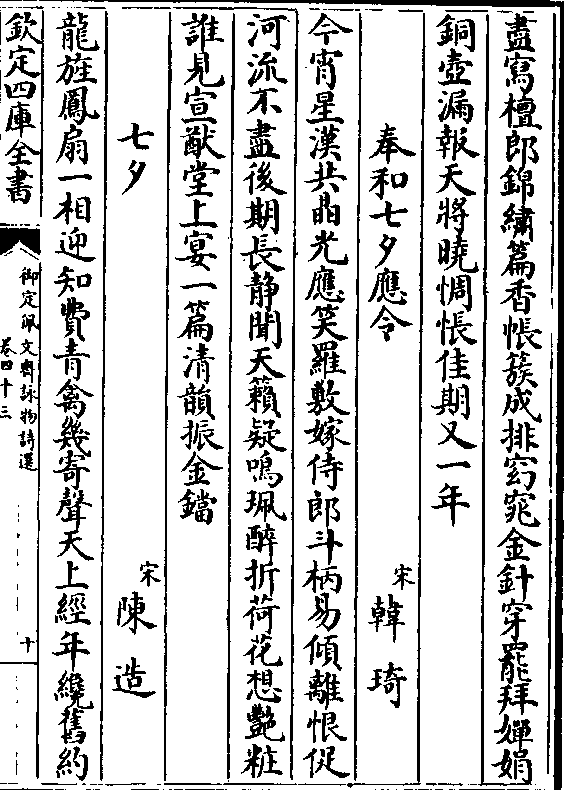 盡寫檀郎錦繡篇香帳簇成排窈窕金針穿罷拜嬋娟
銅壺漏報天將曉惆悵佳期又一年
奉和七夕應令 宋 韓琦
今宵星漢共晶光應笑羅敷嫁侍郎斗柄易傾離恨促
河流不盡後期長静聞天籟疑鳴珮醉折荷花想艷粧
誰見宣猷堂上宴一篇清韻振金鐺
七夕 宋 陳造
龍旌鳳扇一相迎知費青禽幾寄聲天上經年纔舊約
欽定四庫全書
御定佩文齋詠物詩選
卷四十三
十